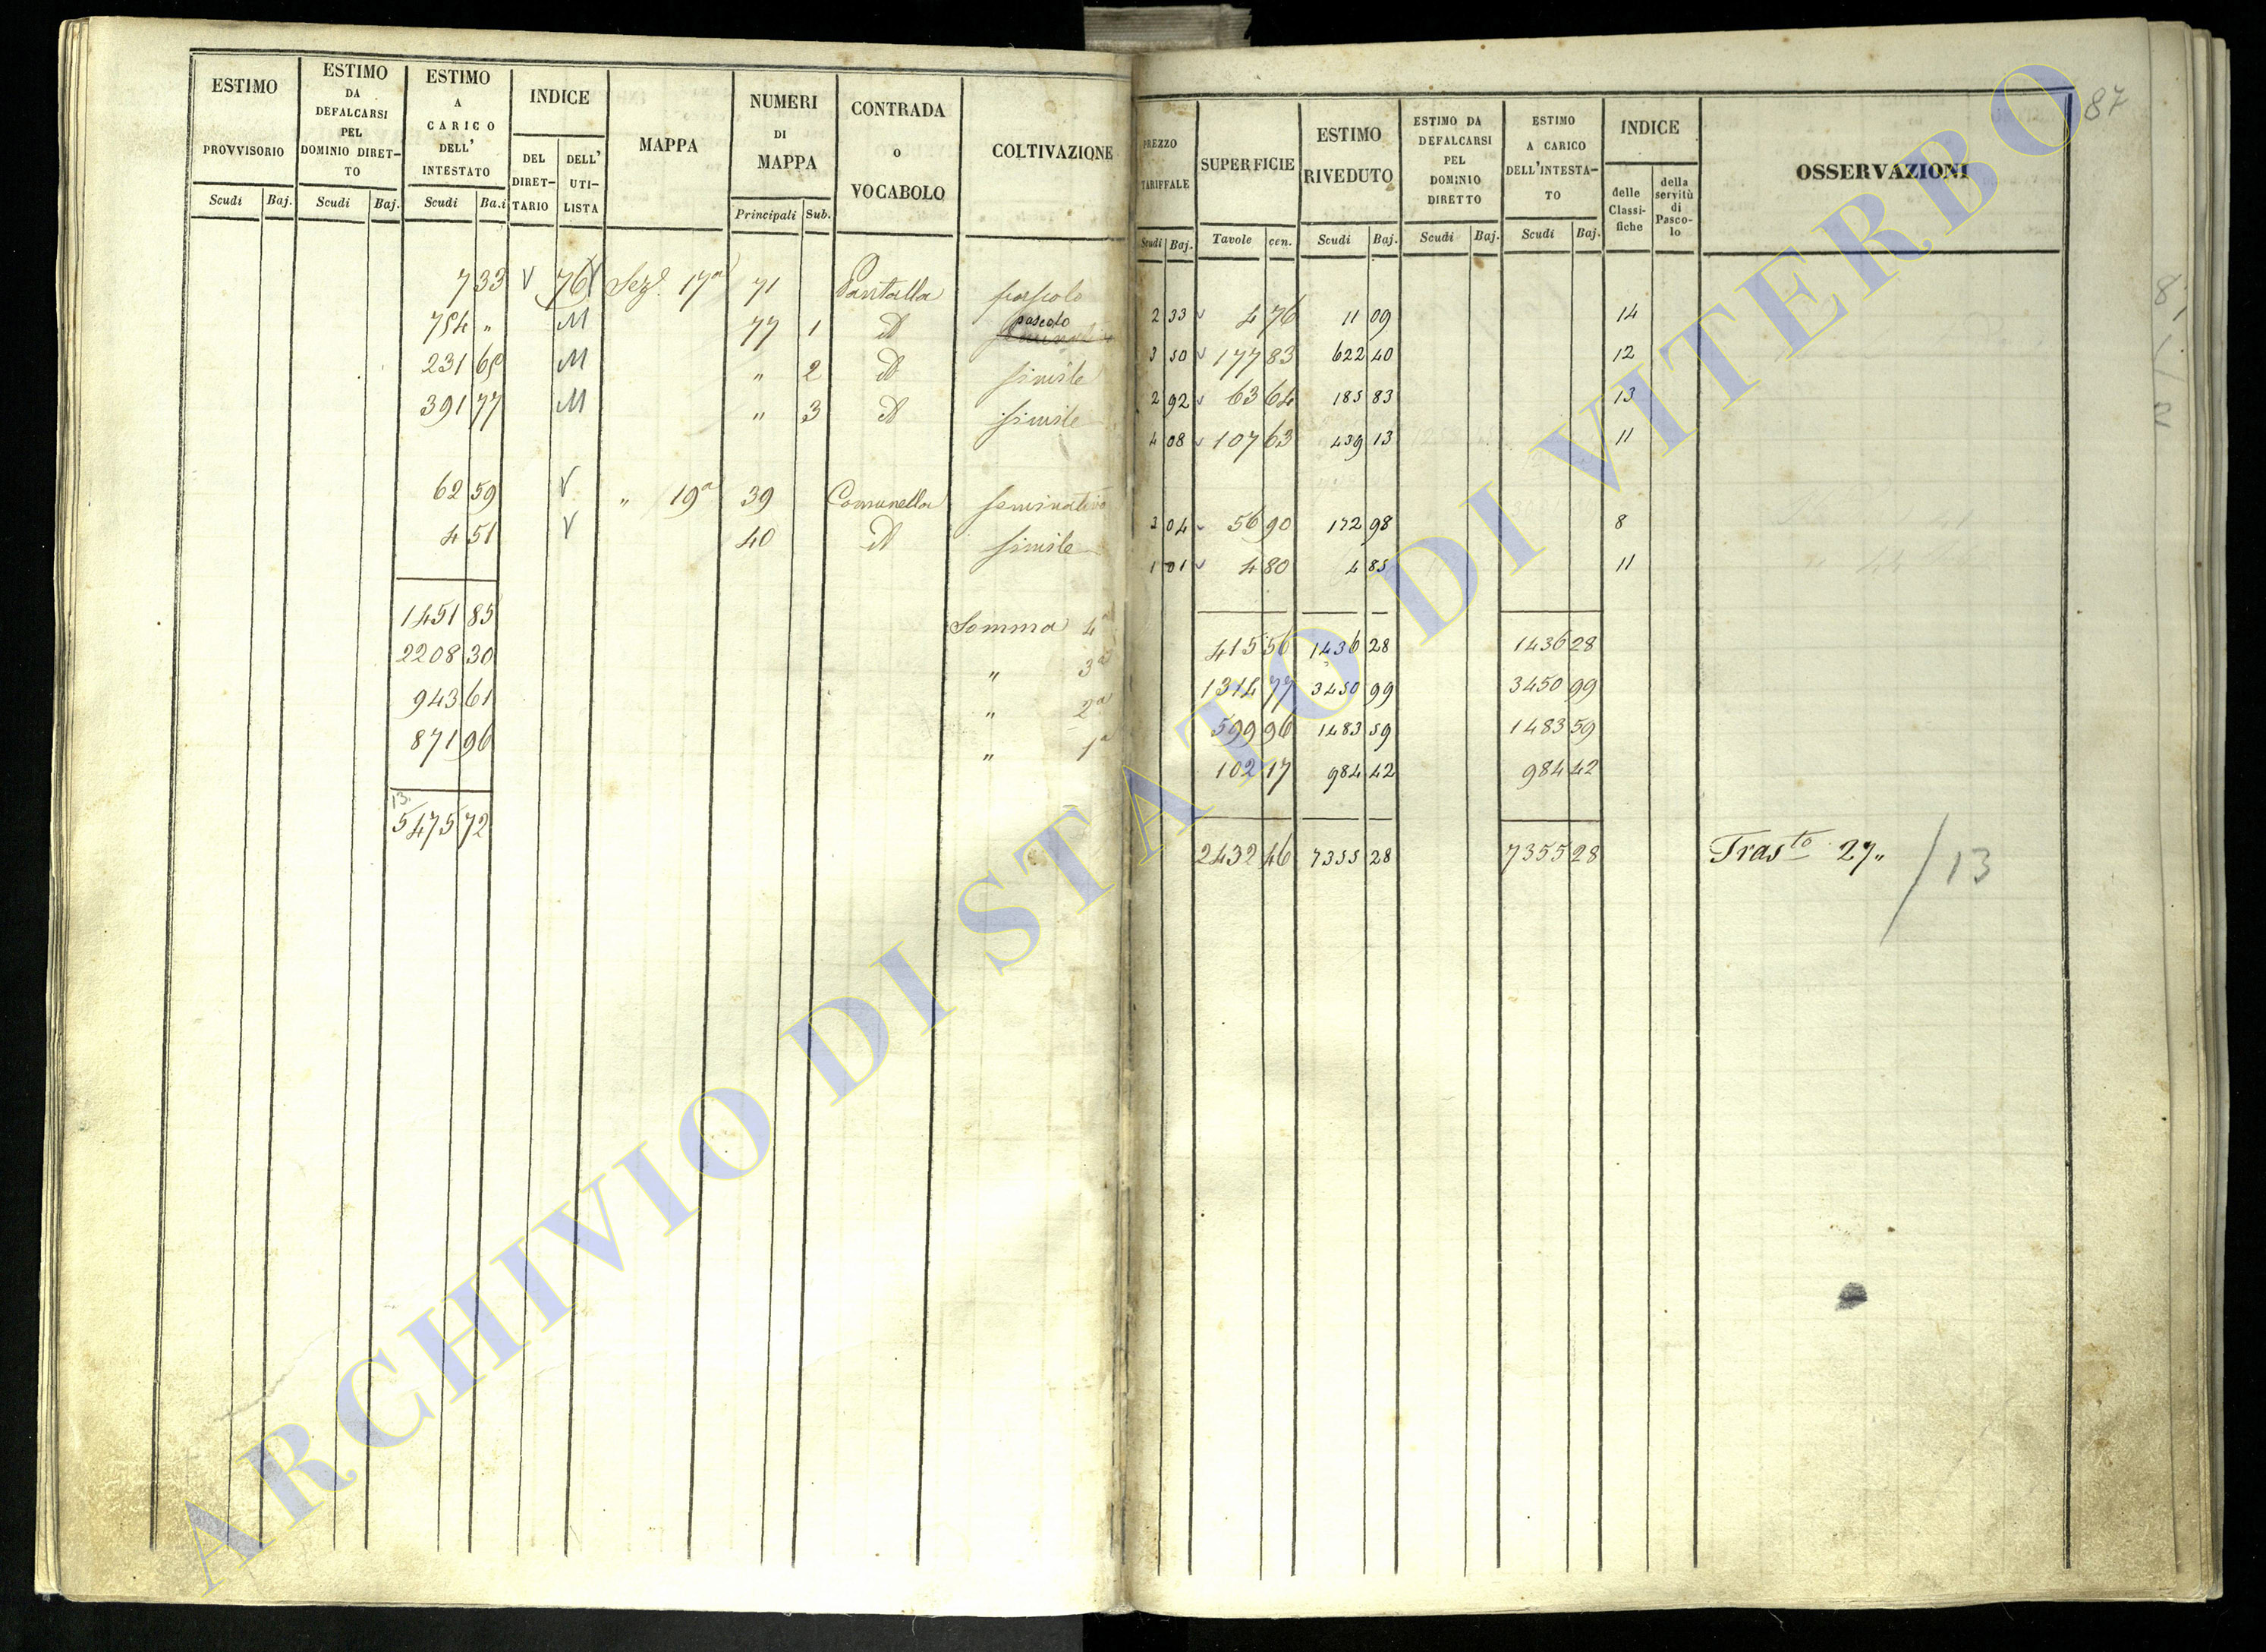 ESTIMO PROVVISORIO
ESTIMO DA DEFALCARSI PEL DOMINIO DIRET-TO
ESTIMO A CARICO DELL' INTESTATO
INDICE
DEL DIRET-TARIO
DELL' UTI-LISTA
MAPPA
NUMERI DI MAPPA
CONTRADA o VOCABOLO
COLTIVAZIONE
Scudi Baj. Scudi Baj. Scudi Ba.i Principali Sub.
7 33 V 76 Sez.e 17a 71 Pantalla pascolo
754 " M 77 1 d pascolo
231 65 M " 2 d simile
391 77 M " 3 d simile
62 59 V " 19a 39 Comunella seminativo
4 51 V 40 d simile
1451 85 Somma 4a
2208 30 " 3a
943 61 " 2a
871 96 " 1a
13.
5475 72
87
PREZZO TARIFFALE
SUPERFICIE
ESTIMO RIVEDUTO
ESTIMO DA DEFALCARSI PEL DOMINIO DIRETTO
ESTIMO A CARICO DELL'INTESTA-TO
INDICE
delle Classi-fiche
della servitù di Pasco-lo
OSSERVAZIONI
Scudi Baj. Tavole cen. Scudi Baj. Scudi Baj. Scudi Baj.
2 33 4 76 11 09 14
3 50 177 83 622 40 12
2 92 63 64 185 83 13
4 08 107 63 439 13 11
3 04 56 90 172 98 8
1 01 4 80 4 85 11
415 56 1436 28 1436 28
1314 77 3450 99 3450 99
599 96 1483 59 1483 59
102 17 984 42 984 42
2432 46 7355 28 7355 28 Trasto 27" / 13
ARCHIVIO DI STATO DI VITERBO